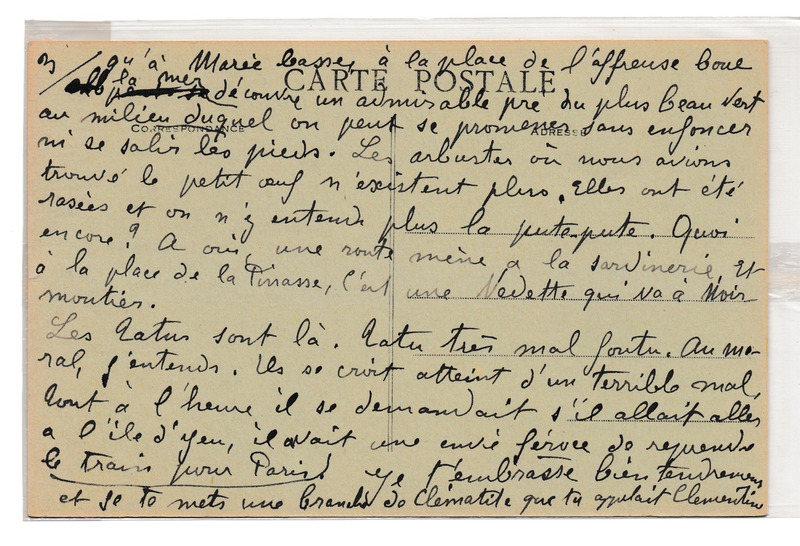 3/ qu'à Marée basse, à la place de l'affreuse boue
CARTE POSTALE
la mer découvre un admirable pré du plus beau vert
CORRESPONDANCE
ADRESSE
au milieu duquel on peut se promener sans enfoncer
ni se salir les pieds. Les arbustes où nous avions
trouvé le petit œuf n'existent plus. Elles ont été
rasées et on n'y entend plus la pute-pute. Quoi
encore? A oui, une route mène a la sardinerie, et
à la place de la Pinasse, c'est une Vedette qui va à Noir
moutiés.
Les Natus sont là. Natu très mal foutu. Au mo-
ral, j'entends. Il se croit atteint d'un terrible mal,
tout à l'heure il se demandait s'il allait aller
a l'île d'Yeu, il avait une envie féroce de reprendre
le train pour Paris! Je t'embrasse bien tendrement
et je te mets une branche de Clématite que tu appelait Clementine